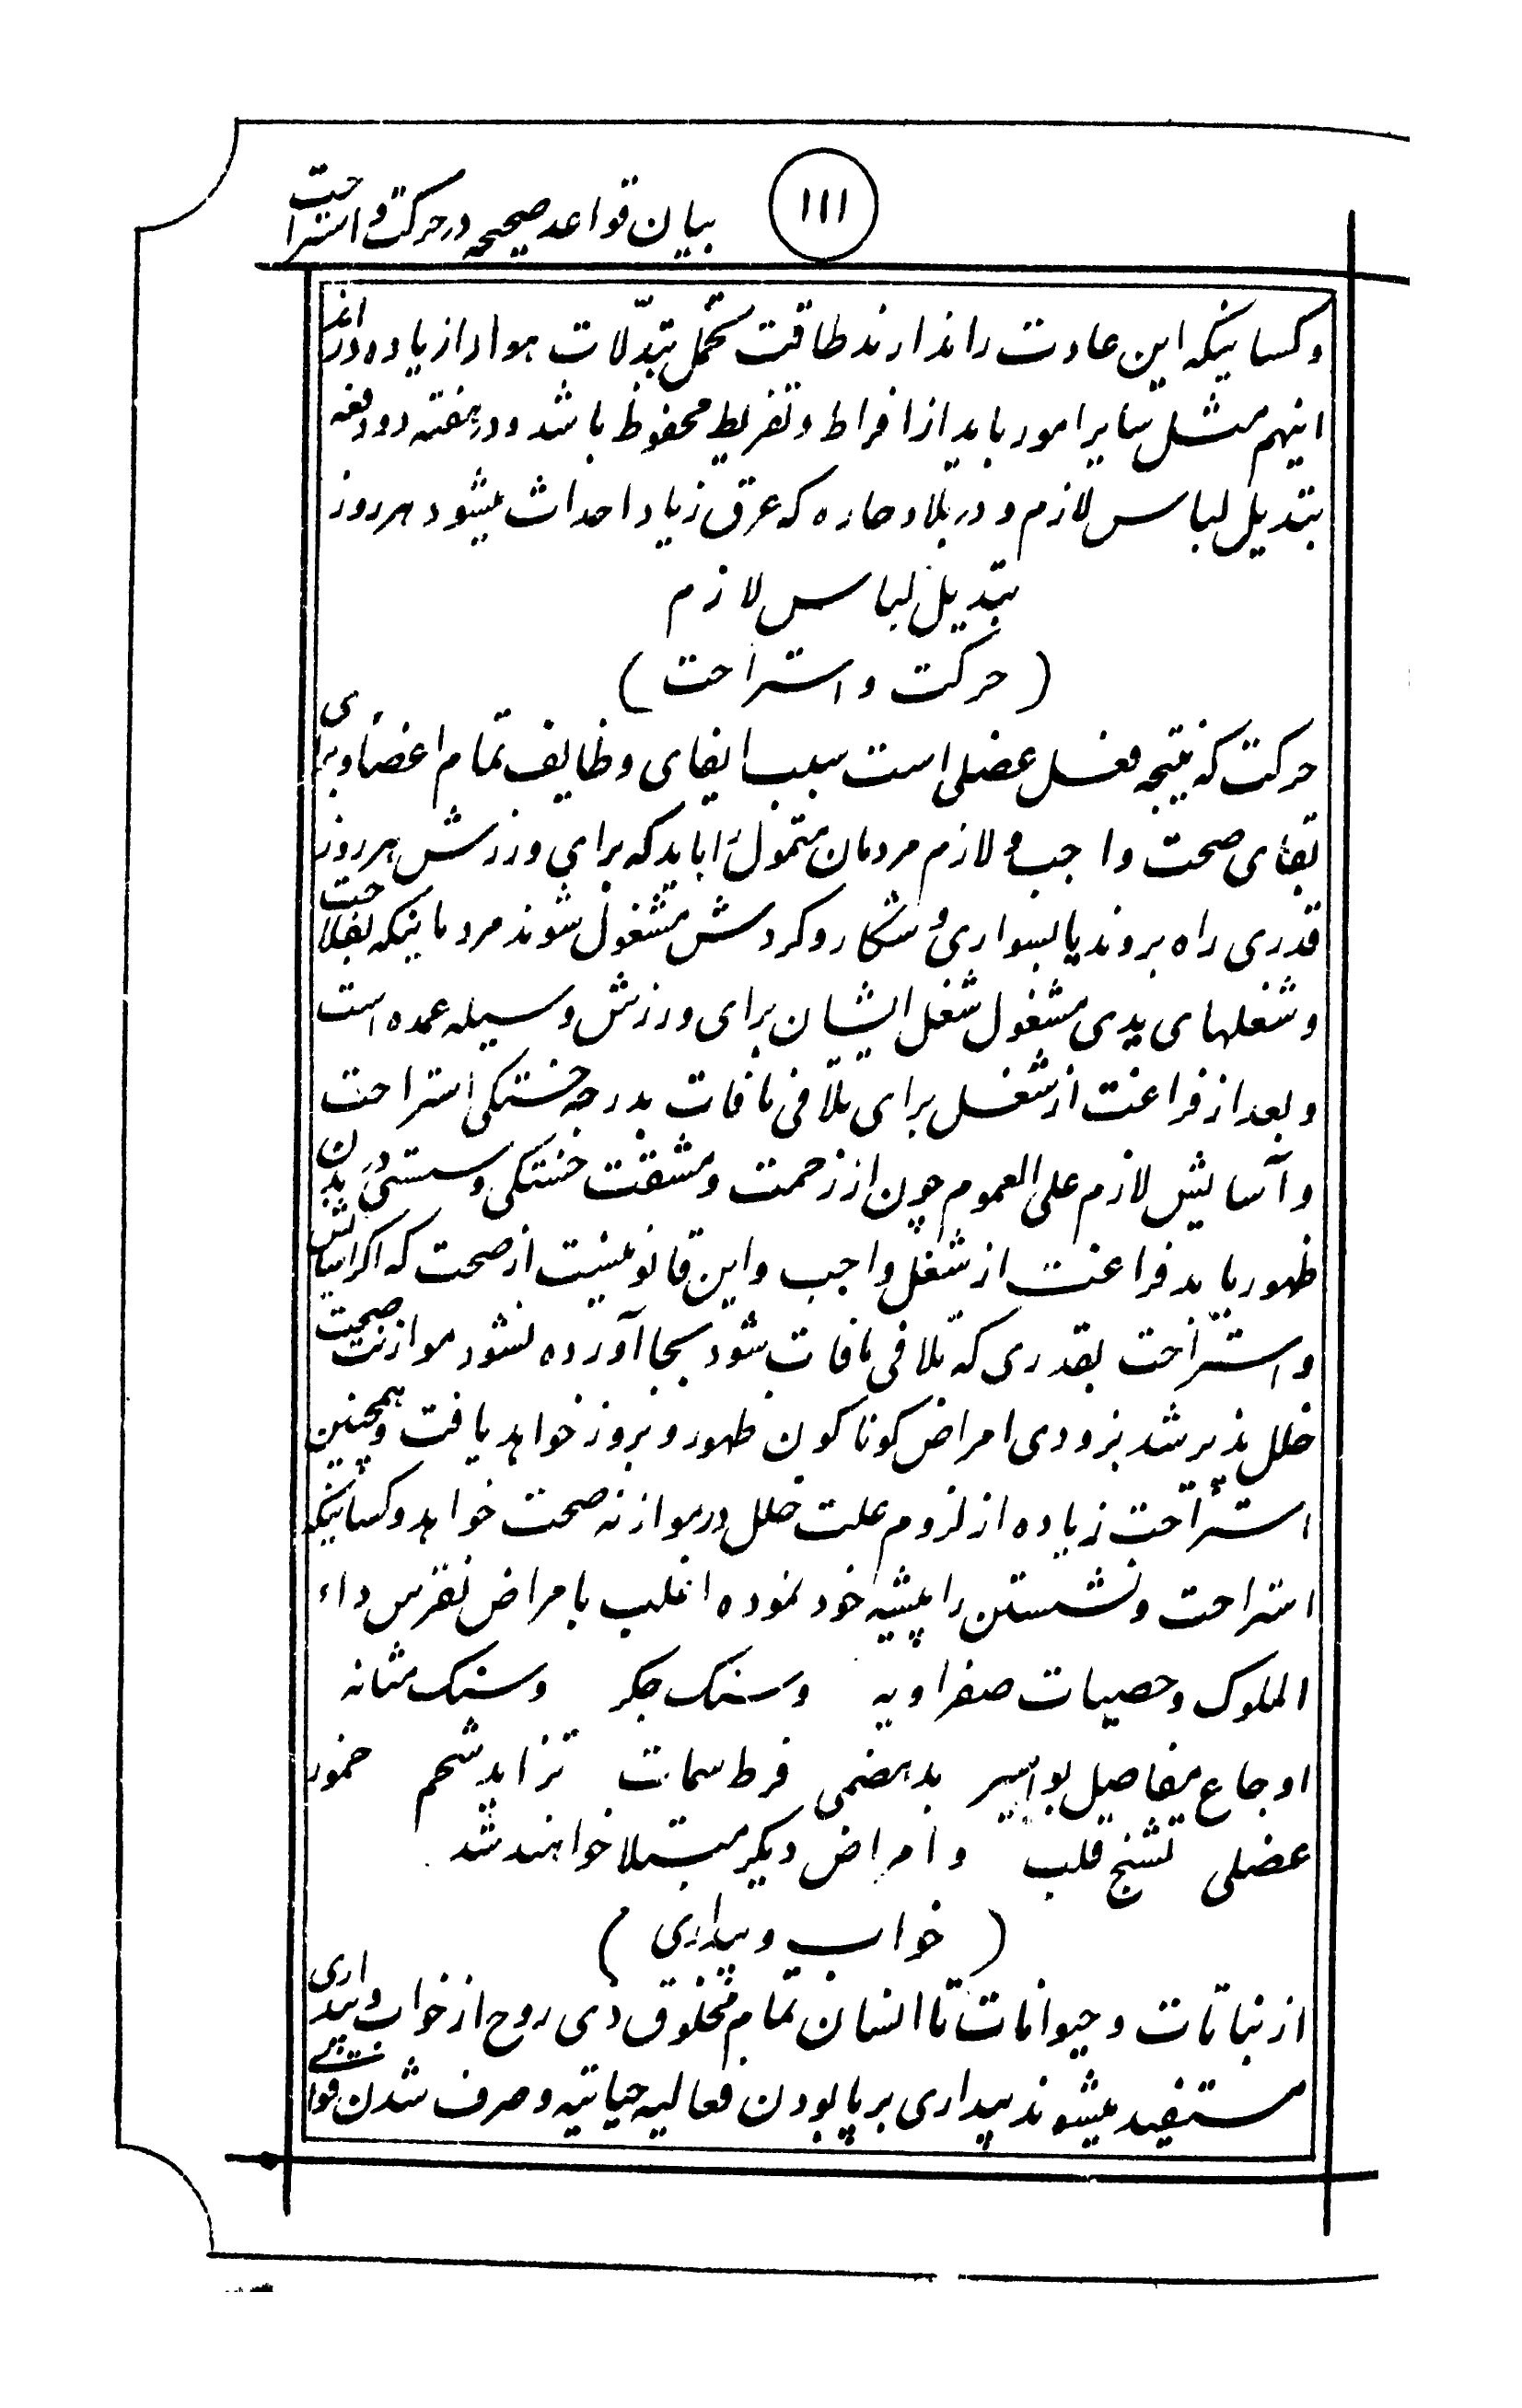 بیان قواعد صحیحه در حرکت و استراحت
۱۱۱
و کسانیکه این عادت را ندارند طاقت تحمل تبدّلات هوا را زیاده دارند
اینهم مثل سایر امور باید از افراط و تفریط محفوظ باشد و در هفته دو دفعه
تبدیل لباس لازم و در بلاد حاره که عرق زیاد احداث میشود هر روز
تبدیل لباس لازم
( حرکت و استراحت )
حرکت که نتیجه فعل عضلی است سبب ایفای وظایف تمام اعضا و برای
بقای صحت واجب و لازم مردمان متمول را باید که برای ورزش هر روز
قدری راه بروند یا بسواری و شکار و کردش مشغول شوند مردمانیکه بفلاحت
و شغلهای یدی مشغول شغل ایشان برای ورزش وسیله عمده است
و بعد از فراغت از شغل برای تلافی مافات بدرجه خستکی استراحت
و آسایش لازم علی العموم چون از زحمت و مشقت خستکی و سستی در بدن
ظهور یابد فراغت از شغل واجب و این قانونیست از صحت که اکر آسایش
و استراحت بقدری که تلافی مافات شود بجا آورده نشود موازنت صحت
خلل پذیر شد بزودی امراض کوناکون ظهور و بروز خواهد یافت و همچنین
استراحت زیاده از لزوم علت خلل در موازنه صحت خواهد و کسانیکه
استراحت و نشستن را پیشیه خود نموده اغلب بامراض نقرس داء
الملوک و حصیات صفراویه و سنک جکر و سنک مثانه
اوجاع مفاصیل بواسیر بدهضمی فرط سمات تزاید شحم خمور
عضلی تشنج قلب و امراض دیکر مبتلا خواهند شد
( خواب و بیداری )
از نباتات و حیوانات تا انسان تمام مخلوق ذی روح از خواب و بیداری
مستفید میشوند بیداری برپا بودن فعالیه حیاتیه و صرف شدن قوا